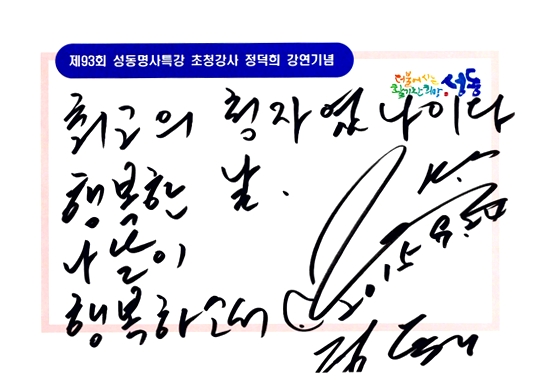 제93회 성동명사특강 초청강사 정덕희 강연기념
더불어 사는
활기찬 희망 성동
최고의 청자였나이다
행복한 날.
나날이
행복하소서
2015